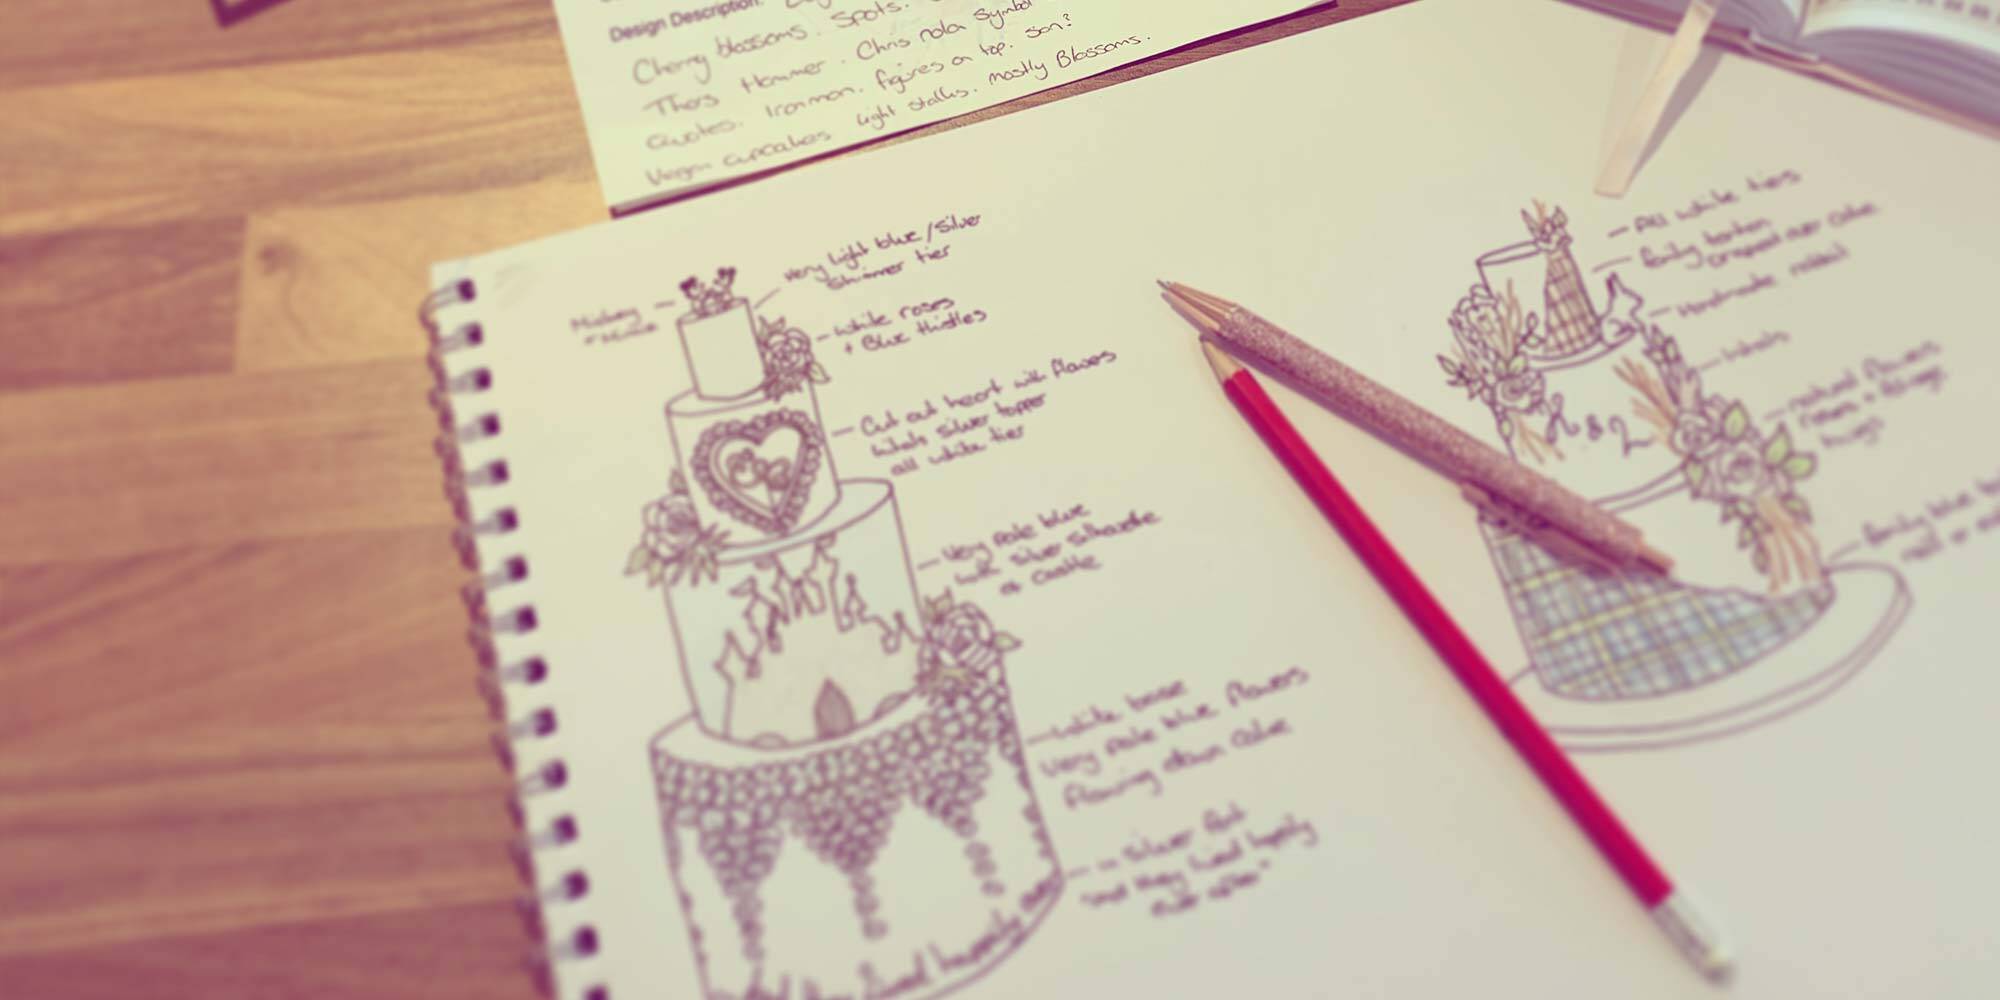 Design Description:
Cherry blossoms. Spots.
Thors Hammer. Chris nola Symbol
Quotes. Ironman. figures on top. son?
Vegan cupcakes light stalks. mostly Blossoms.
Mickey
very light blue/silver
shimmer tier
white roses
+ Blue thistles
Cut out heart with flowers
initials silver topper
all white tier
Very pale blue
with silver silhouette
of castle
white base
Very pale blue flowers
flowing down cake
silver font
"and they lived happily
ever after"
lived happily ever
All white tiers
family tartan
draped over cake
Handmade rabbit
initials
& L
natural flowers
roses + foliage
family blue